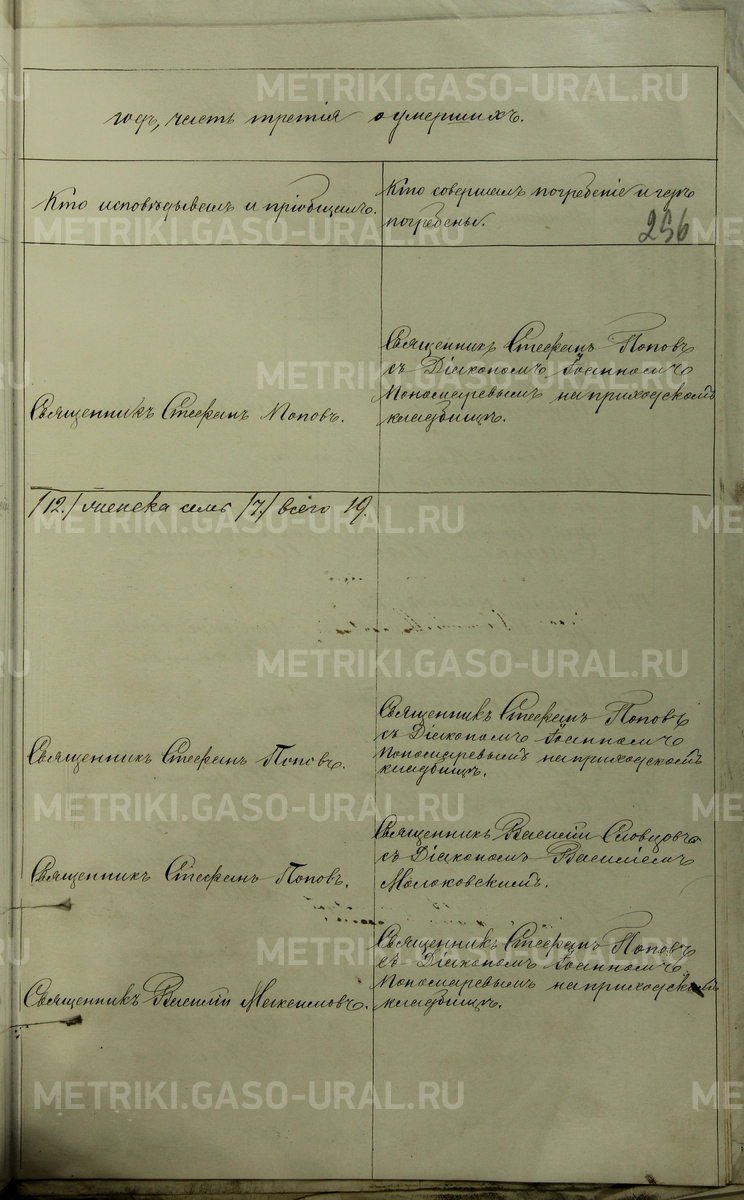 годъ, часть третiя о умершихъ.
Кто исповѣдывалъ и прiобщалъ.
Кто совершалъ погребенiе и гдѣ
погребены.
256
Священникъ Стефанъ Поповъ.
Священникъ Стефанъ Поповъ
съ Дiакономъ Iоанномъ
Пономаревымъ на приходскомъ
кладбищѣ.
/12./ женска семь /7./ всего 19.
Священникъ Стефанъ Поповъ.
Священникъ Стефанъ Поповъ
съ Дiакономъ Iоанномъ
Пономаревымъ на приходскомъ
кладбищѣ.
Священникъ Стефанъ Поповъ.
Священникъ Василiй Словцовъ
съ Дiакономъ Василiемъ
Молоковскимъ.
Священникъ Василiй Максимовъ.
Священникъ Стефанъ Поповъ
съ Дiакономъ Iоанномъ
Пономаревымъ на приходскомъ
кладбищѣ.
METRIKI.GASO-URAL.RU
METRIKI.GASO-URAL.RU
METRIKI.GASO-URAL.RU
METRIKI.GASO-URAL.RU
METRIKI.GASO-URAL.RU
METRIKI.GASO-URAL.RU
METRIKI.GASO-URAL.RU
METRIKI.GASO-URAL.RU